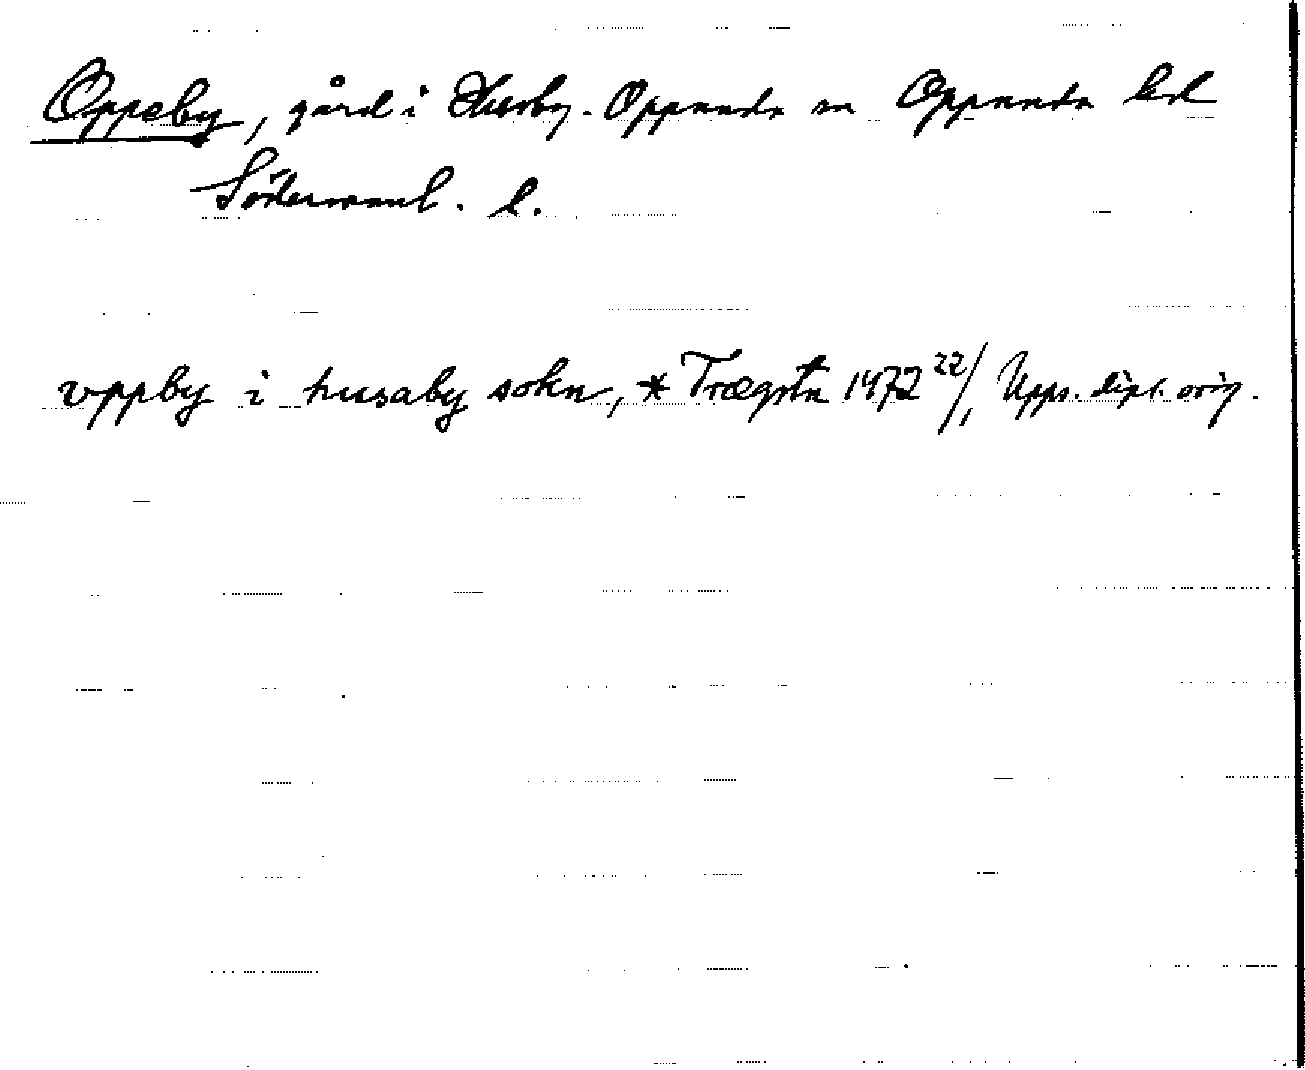 Oppeby, gård i Husby-Oppunda sn Oppunda hd
Södermanl. l.
vppby i husaby sokn, * Trægsta 1472 22/1 Upps. dipl. orig.